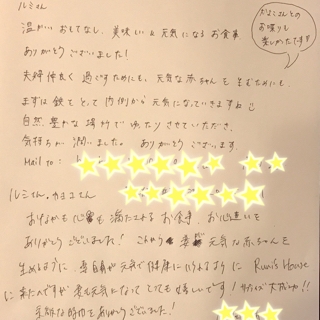 ルミさん
温かい おもてなし、美味しい & 元気になる お食事
ありがとう ございました!
夫婦仲良く 過ごすためにも、元気な赤ちゃんを 生むためにも、
まずは 食 で 内側から 元気になっていきますね
自然 豊かな 場所で ゆったり させていただき、
気持ちが 潤いました。 ありがとう ございます。
Mail to:
おしゃべりも
楽しかったです!!
ルミさん、
おなかも 心も 満たされる お食事、お心遣いを
ありがとう ございました!
元気な赤ちゃんを
生めるように 妻自身が 元気で健康に いられるように Rumi's House
に 来た
も 元気になって とても 嬉しいです! サプライズ 大成功!!
時間を ありがとうございました!